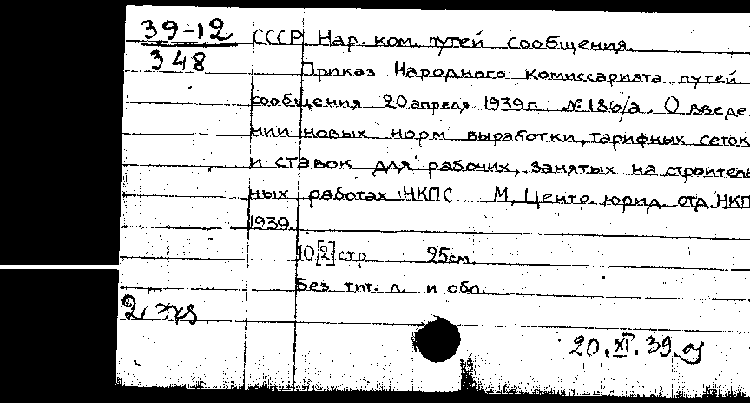 39-12
348
СССР Нар. ком. путей сообщения.
Приказ Народного комиссариата путей
сообщения 20 апреля 1939 г. № 186/а. О введе
нии новых норм выработки, тарифных сеток
и ставок для рабочих, занятых на строитель
ных работах НКПС М, Центр. юрид. отд. НКП
1939.
10[2] стр 25см.
Без тит. л. и обл.
20.XI.39.